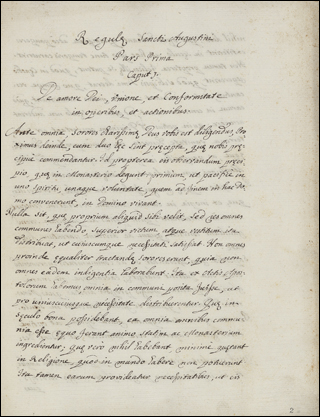 Regulæ Sancti Augustini
Pars Prima
Caput 1.
De amore Dei, Unione, et Conformitate
in operibus et actionibus.
Ante omnia, Sorores Carissimæ, Deus vobis est diligendus, Pro-
ximus deinde, cum duo hæc sint præcepta, quæ nobis præ-
cipuè commendantur. Id propterea vos observandum præci-
pio, quæ in Monasterio degunt: primùm, ut pacificè in
uno spiritu, unaque voluntate, quem ad finem in hac Do-
mo convenerunt, in Domino vivant.
Nulla sit, quæ proprium aliquid sibi velit, sed res omnes
communes habendo, Superior victum atque vestitum ita
distribuat, ut cuiuscumque necessitati satisfiat. Non omnes
proinde equaliter tractandæ Sorores erunt, quia non
omnes eadem indigentia laborabunt. Ita et Actis Apos-
tolorum habemus omnia in communi posita fuisse, ut
pro uniuscuiusque necessitate distribuerentur. Quæ in
sæculo bona possidebant, ea omnia omnibus commu-
nia esse æquo ferant animo statim ac Monasterium
ingrediuntur; quæ verò nihil habebant minimè quærant
in Religione, quæ in mundo habere non potuerunt.
Ita tamen earum provideatur necessitatibus, ut eis
2